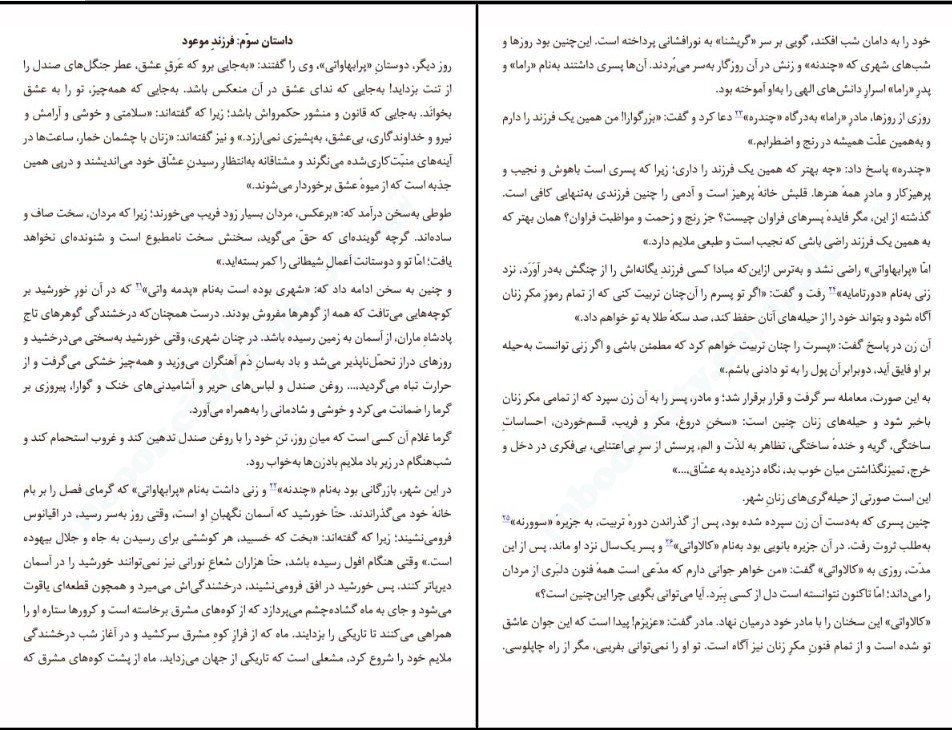 داستان سوّم: فرزندِ موعود
روز دیگر، دوستانِ «پرابهاواتی»، وی را گفتند: «به‌جایی برو که عَرقِ عشق، عطر جنگل‌های صندل را
از تنت بزداید! به‌جایی که ندای عشق در آن منعکس باشد. به‌جایی که همه‌چیز، تو را به عشق
بخواند. به‌جایی که قانون و منشور حکمرواش باشد؛ زیرا که گفته‌اند: «سلامتی و خوشی و آرامش و
نیرو و خداوندگاری، بی‌عشق، به‌پشیزی نمی‌ارزد.» و نیز گفته‌اند: «زنان با چشمان خمار، ساعت‌ها در
آینه‌های منبّت‌کاری‌شده می‌نگرند و مشتاقانه به‌انتظارِ رسیدنِ عشّاق خود می‌اندیشند و درپی همین
جذبه است که از میوهٔ عشق برخوردار می‌شوند.»
طوطی به‌سخن درآمد که: «برعکس، مردان بسیار زود فریب می‌خورند؛ زیرا که مردان، سخت صاف و
ساده‌اند. گرچه گوینده‌ای که حقّ می‌گوید، سخنش سخت نامطبوع است و شنونده‌ای نخواهد
یافت؛ امّا تو و دوستانت اَعمالِ شیطانی را کمر بسته‌اید.»
و چنین به سخن ادامه داد که: «شهری بوده است به‌نام «پدمه واتی»۲۱ که در آن نورِ خورشید بر
کوچه‌هایی می‌تافت که همه از گوهرها مفروش بودند. درست همچنان‌که درخشندگی گوهرهای تاجِ
پادشاهِ ماران، از آسمان به زمین رسیده باشد. در چنان شهری، وقتی خورشید به‌سختی می‌درخشید و
روزهای دراز تحمّل‌ناپذیر می‌شد و باد به‌سانِ دَم آهنگران می‌وزید و همه‌چیز خشکی می‌گرفت و از
حرارت تباه می‌گردید،... روغن صندل و لباس‌های حریر و آشامیدنی‌های خنک و گوارا، پیروزی بر
گرما را ضمانت می‌کرد و خوشی و شادمانی را به‌همراه می‌آورد.
گرما غلامِ آن کسی است که میانِ روز، تنِ خود را با روغن صندل تدهین کند و غروب استحمام کند و
شب‌هنگام در زیر باد ملایم بادزن‌ها به‌خواب رود.
در این شهر، بازرگانی بود به‌نام «چندنه»۲۲ و زنی داشت به‌نام «پرابهاواتی» که گرمای فصل را بر بام
خانهٔ خود می‌گذراندند. حتّا خورشید که آسمان نگهبانِ او است، وقتی روز به‌سر رسید، در اقیانوس
فرومی‌نشیند؛ زیرا که گفته‌اند: «بخت که خسبید، هر کوششی برای رسیدن به جاه و جلال بیهوده
است.» وقتی هنگام افول رسیده باشد، حتّا هزاران شعاعِ نورانی نیز نمی‌توانند خورشید را در آسمان
دیرپاتر کنند. پس خورشید در افق فرومی‌نشیند، درخشندگی‌اش می‌میرد و همچون قطعه‌ای یاقوت
می‌شود و جای به ماه گشاده‌چشم می‌پردازد که از کوه‌های مشرق برخاسته است و کرورها ستاره او را
همراهی می‌کنند تا تاریکی را بزدایند. ماه که از فرازِ کوهِ مشرق سرکشید و در آغاز شب درخشندگی
ملایم خود را شروع کرد، مشعلی است که تاریکی از جهان می‌زداید. ماه از پشت کوه‌های مشرق که
خود را به دامان شب افکند، گویی بر سر «گریشنا» به نورافشانی پرداخته است. این‌چنین بود روزها و
شب‌های شهری که «چندنه» و زنش در آن روزگار به‌سر می‌بُردند. آن‌ها پسری داشتند به‌نام «راما» و
پدرِ «راما» اسرارِ دانش‌های الهی را به‌او آموخته بود.
روزی از روزها، مادرِ «راما» به‌درگاه «چندره»۲۳ دعا کرد و گفت: «بزرگوارا! من همین یک فرزند را دارم
و به‌همین علّت همیشه در رنج و اضطرابم.»
«چندره» پاسخ داد: «چه بهتر که همین یک فرزند را داری؛ زیرا که پسری است باهوش و نجیب و
پرهیزکار و مادرِ همهٔ هنرها. قلبش خانهٔ پرهیز است و آدمی را چنین فرزندی به‌تنهایی کافی است.
گذشته از این، مگر فایدهٔ پسرهای فراوان چیست؟ جز رنج و زحمت و مواظبت فراوان؟ همان بهتر که
به همین یک فرزند راضی باشی که نجیب است و طبعی ملایم دارد.»
امّا «پرابهاواتی» راضی نشد و به‌ترس ازاین‌که مبادا کسی فرزندِ یگانه‌اش را از چنگش به‌در آوَرَد، نزد
زنی به‌نام «دورتامایه»۲۴ رفت و گفت: «اگر تو پسرم را آن‌چنان تربیت کنی که از تمام رموز مکرِ زنان
آگاه شود و بتواند خود را از حیله‌های آنان حفظ کند، صد سکهٔ طلا به تو خواهم داد.»
آن زن در پاسخ گفت: «پسرت را چنان تربیت خواهم کرد که مطمئن باشی و اگر زنی توانست به‌حیله
بر او فایق آید، دوبرابر آن پول را به تو دادنی باشم.»
به این صورت، معامله سر گرفت و قرار برقرار شد؛ و مادر، پسر را به آن زن سپرد که از تمامی مکرِ زنان
باخبر شود و حیله‌های زنان چنین است: «سخنِ دروغ، مکر و فریب، قسم‌خوردن، احساساتِ
ساختگی، گریه و خندهٔ ساختگی، تظاهر به لذّت و الم، پرسش از سرِ بی‌اعتنایی، بی‌فکری در دخل و
خرج، تمیزنگذاشتن میان خوب بد، نگاه دزدیده به عشّاق،...»
این است صورتی از حیله‌گری‌های زنانِ شهر.
چنین پسری که به‌دست آن زن سپرده شده بود، پس از گذراندن دورهٔ تربیت، به جزیرهٔ «سوورنه»۲۵
به‌طلب ثروت رفت. در آن جزیره بانویی بود به‌نام «کالاواتی»۲۶ و پسر یک‌سال نزد او ماند. پس از این
مدّت، روزی به «کالاواتی» گفت: «من خواهر جوانی دارم که مدّعی است همهٔ فنون دلبَری از مردان
را می‌داند؛ امّا تاکنون نتوانسته است دل از کسی ببَرد. آیا می‌توانی بگویی چرا این‌چنین است؟»
«کالاواتی» این سخنان را با مادر خود درمیان نهاد. مادر گفت: «عزیزم! پیدا است که این جوان عاشق
تو شده است و از تمام فنونِ مکرِ زنان نیز آگاه است. تو او را نمی‌توانی بفریبی، مگر از راه چاپلوسی.